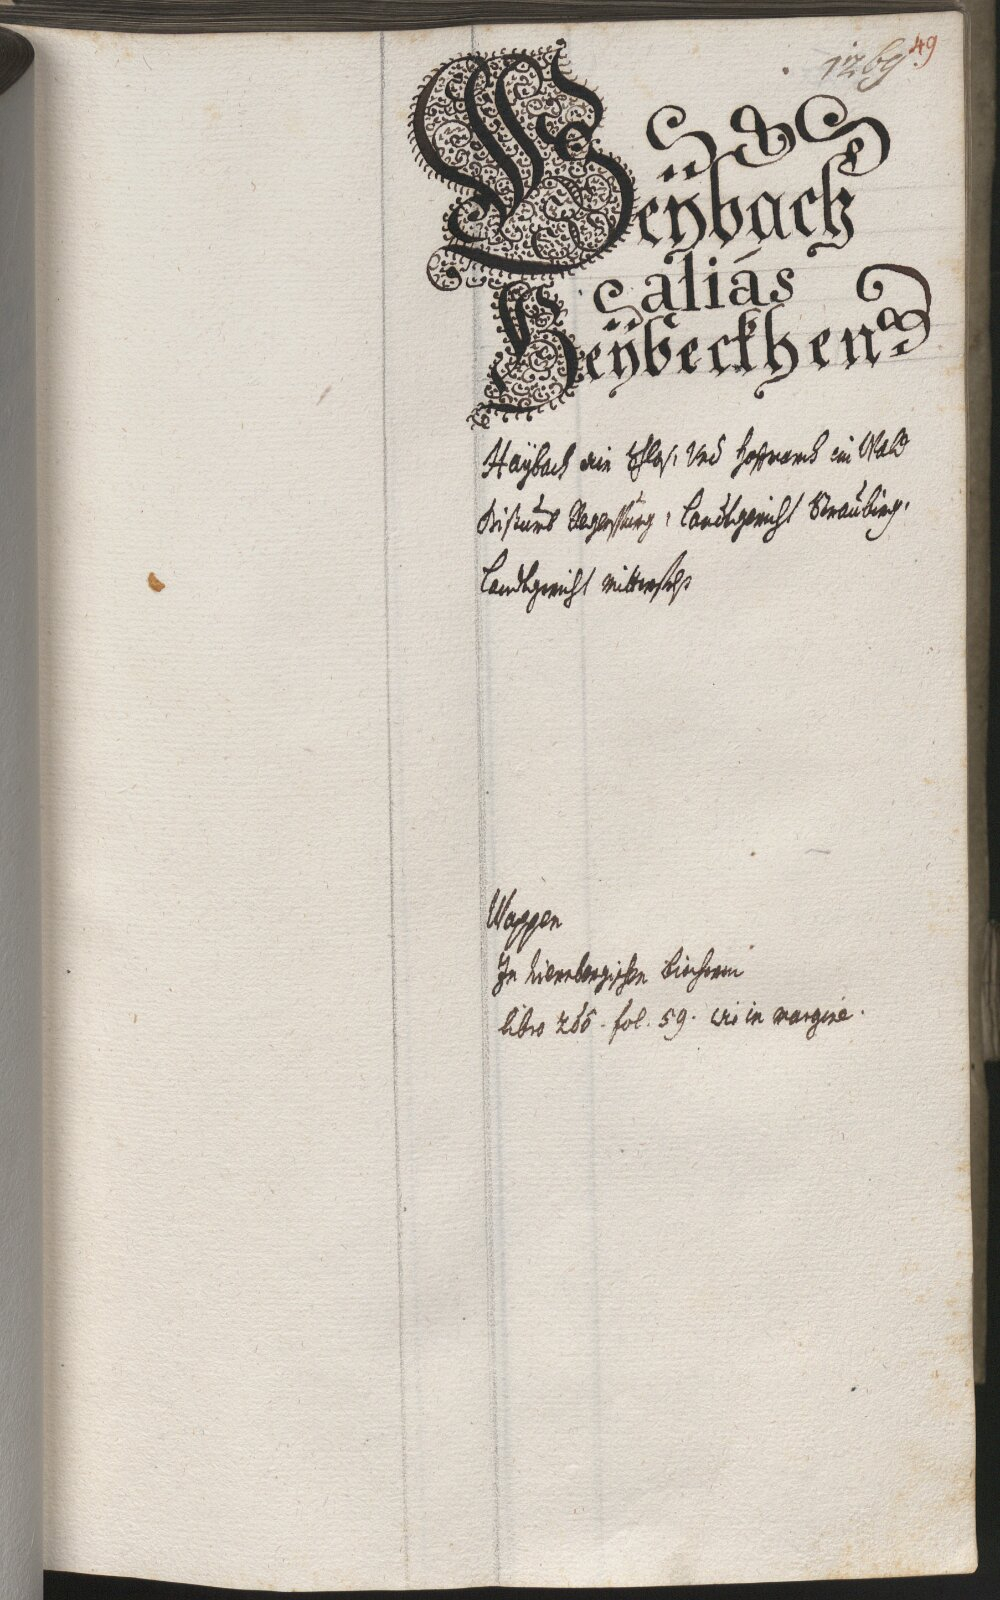 1269 49
Heÿbach
aliás
Heÿbeckhen
Haÿbach ein Schloss Und Hofmarch im Wald
Bistumb Regenspurg, Landtgericht Straubing,
Landtgericht Mitterfels
Wappen
In Niernbergischen Biechern
libro 266. fol. 59. wie in margine.